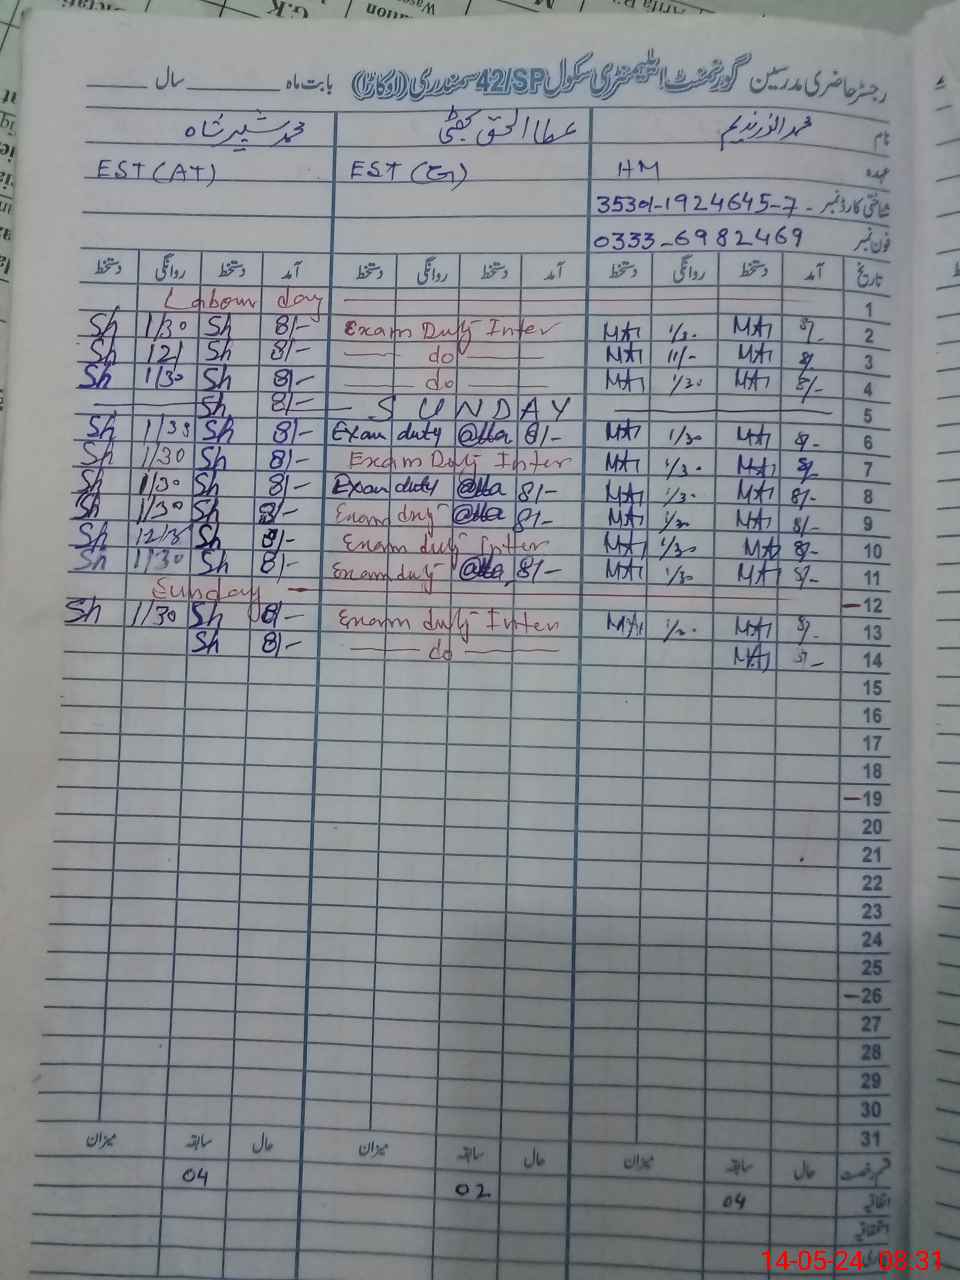 رجسٹر حاضری مدرسین گورنمنٹ ایلیمنٹری سکول 42/SP سمندری (اوکاڑا) بابت ماہ ______ سال ______
نام محمد انور ندیم عطاالحق بھٹی محمد شبیر شاہ
عہدہ HM EST (ج) EST (AT)
شناختی کارڈ نمبر 35301-1924645-7
فون نمبر 0333-6982469
تاریخ آمد دستخط روانگی دستخط آمد دستخط روانگی دستخط آمد دستخط روانگی دستخط
1 Labour day
2 8/- 1/30 Exam Duty Inter 8/- Sh 1/30 Sh
3 8/- 11/- do 8/- Sh 12/ Sh
4 8/- 1/30 do 8/- Sh 1/30 Sh
5 SUNDAY 8/- Sh
6 8/- 1/30 Exam duty 8/- 8/- Sh 1/30 Sh
7 8/- 1/30 Exam Duty Inter 8/- Sh 1/30 Sh
8 8/- 1/30 Exam duty 8/- 8/- Sh 1/30 Sh
9 8/- 1/30 Exam duty 8/- 8/- Sh 1/30 Sh
10 8/- 1/30 Exam duty Inter 8/- Sh Sh
11 8/- 1/30 Exam duty 8/- 8/- Sh 1/30 Sh
12 Sunday
13 8/- Exam duty Inter 8/- Sh 1/30 Sh
14 8/- do 8/- Sh
15
16
17
18
19
20
21
22
23
24
25
26
27
28
29
30
31
قسم رخصت حال سابقہ میزان حال سابقہ میزان حال سابقہ میزان
اتفاقیہ 04 02 04
14-05-24 08:31